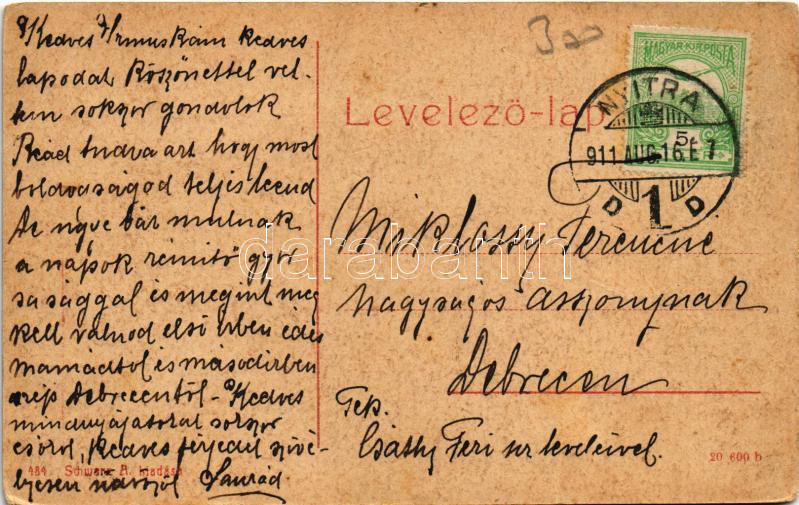 Kedves Irmuskám kedves
lapodat Köszönettel vet-
tem sokszor gondolok
Reád tudva azt hogy most
boldogságod teljes leend
De ugye bár mulnak
a napok rémitő gyor
sasággal és megint meg
kell válnod első sorban édes
mamádtol és másodsorban
szép Debrecentől - Kedves
mindnyájatokat sokszor
csókol, kedves férjedet szivé-
lyesen üdvözöl
484. Schwarz A. kiadása
300
Levelező-lap
MAGYAR KIR. POSTA
5f
NYITRA
911 AUG. 16. E 7
D 1 D
Miklóssy Ferencné
nagyságos asszonynak
Debrecen
Tek.
Csáthy Feri úr leveleivel.
20 600 b
darabanth